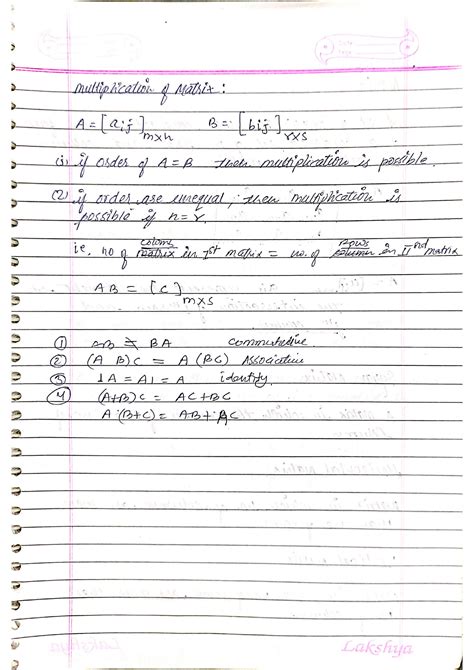 Multiplication of Matrix :
A = [aij]m×n B = [bij]r×s
(1) if order of A = B then multiplication is possible.
(2) if order are unequal, then multiplication is
possible if n = r.
i.e. no of colomn matrix in Ist matrix = no. of Rows column in IInd matrix
AB = [C]m×s
① AB ≠ BA commutative
② (A B)C = A (BC) Associative
③ 1A = A1 = A identity
④ (A+B)C = AC+BC
A (B+C) = AB+AC
Lakshya